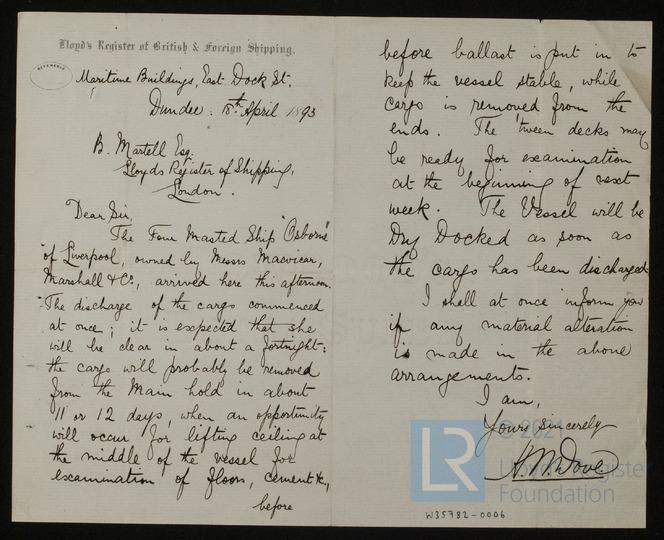 Lloyd's Register of British & Foreign Shipping.
Maritime Buildings, East Dock St.
Dundee: 18th April 1893
B. Martell Esq.
Lloyds Register of Shipping,
London.
Dear Sir,
The Four Masted Ship "Osborne"
of Liverpool, owned by Messrs Macvicar,
Marshall & Co, arrived here this afternoon.
The discharge of the cargo commenced
at once; it is expected that she
will be clear in about a fortnight:
the cargo will probably be removed
from the Main hold in about
11 or 12 days, when an opportunity
will occur for lifting ceiling at
the middle of the vessel for
examination of floors, cement &c.,
before
before ballast is put in to
keep the vessel stable, while
cargo is removed from the
ends. The 'tween decks may
be ready for examination
at the beginning of next
week. The Vessel will be
Dry Docked as soon as
the cargo has been discharged.
I shall at once inform you
if any material alteration
is made in the above
arrangements.
I am,
Yours sincerely
H. M. Dove
© 2021
LR
Lloyd's Register
Foundation
W35782-0006